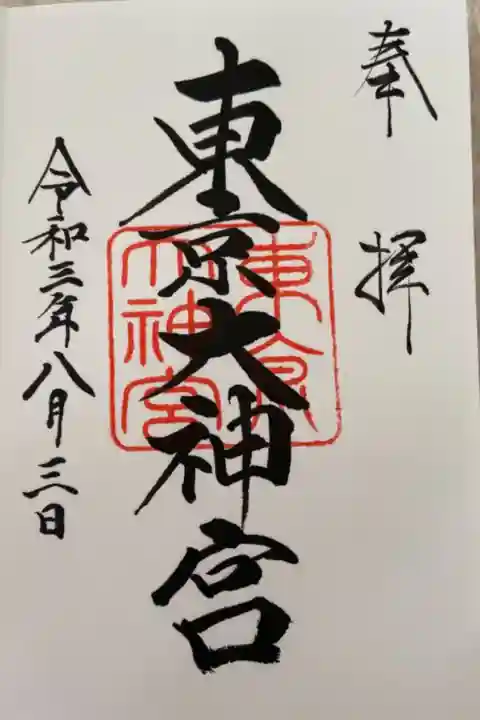 奉拝
東京大神宮
東京
大神宮
令和三年八月三日